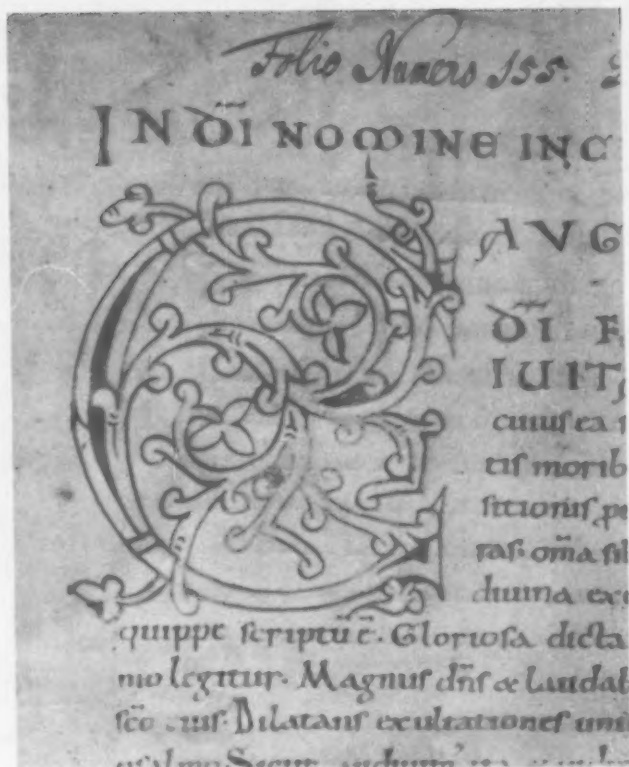 Folio Numero 155.
IN D̄I NOMINE INC
AUG
C
D̄I F
IUIT
cuiuſ ea
tiſ morib
ſitioniſ
raſ. om̄a ſil
diuina exc
quippe ſcriptū ē. Glorioſa dicta
mo legitur. Magnuſ dn̄ſ & laudab
ſc̄o eiuſ. Dilatanſ exultationeſ uni
pſalmo Sicut audiuim'